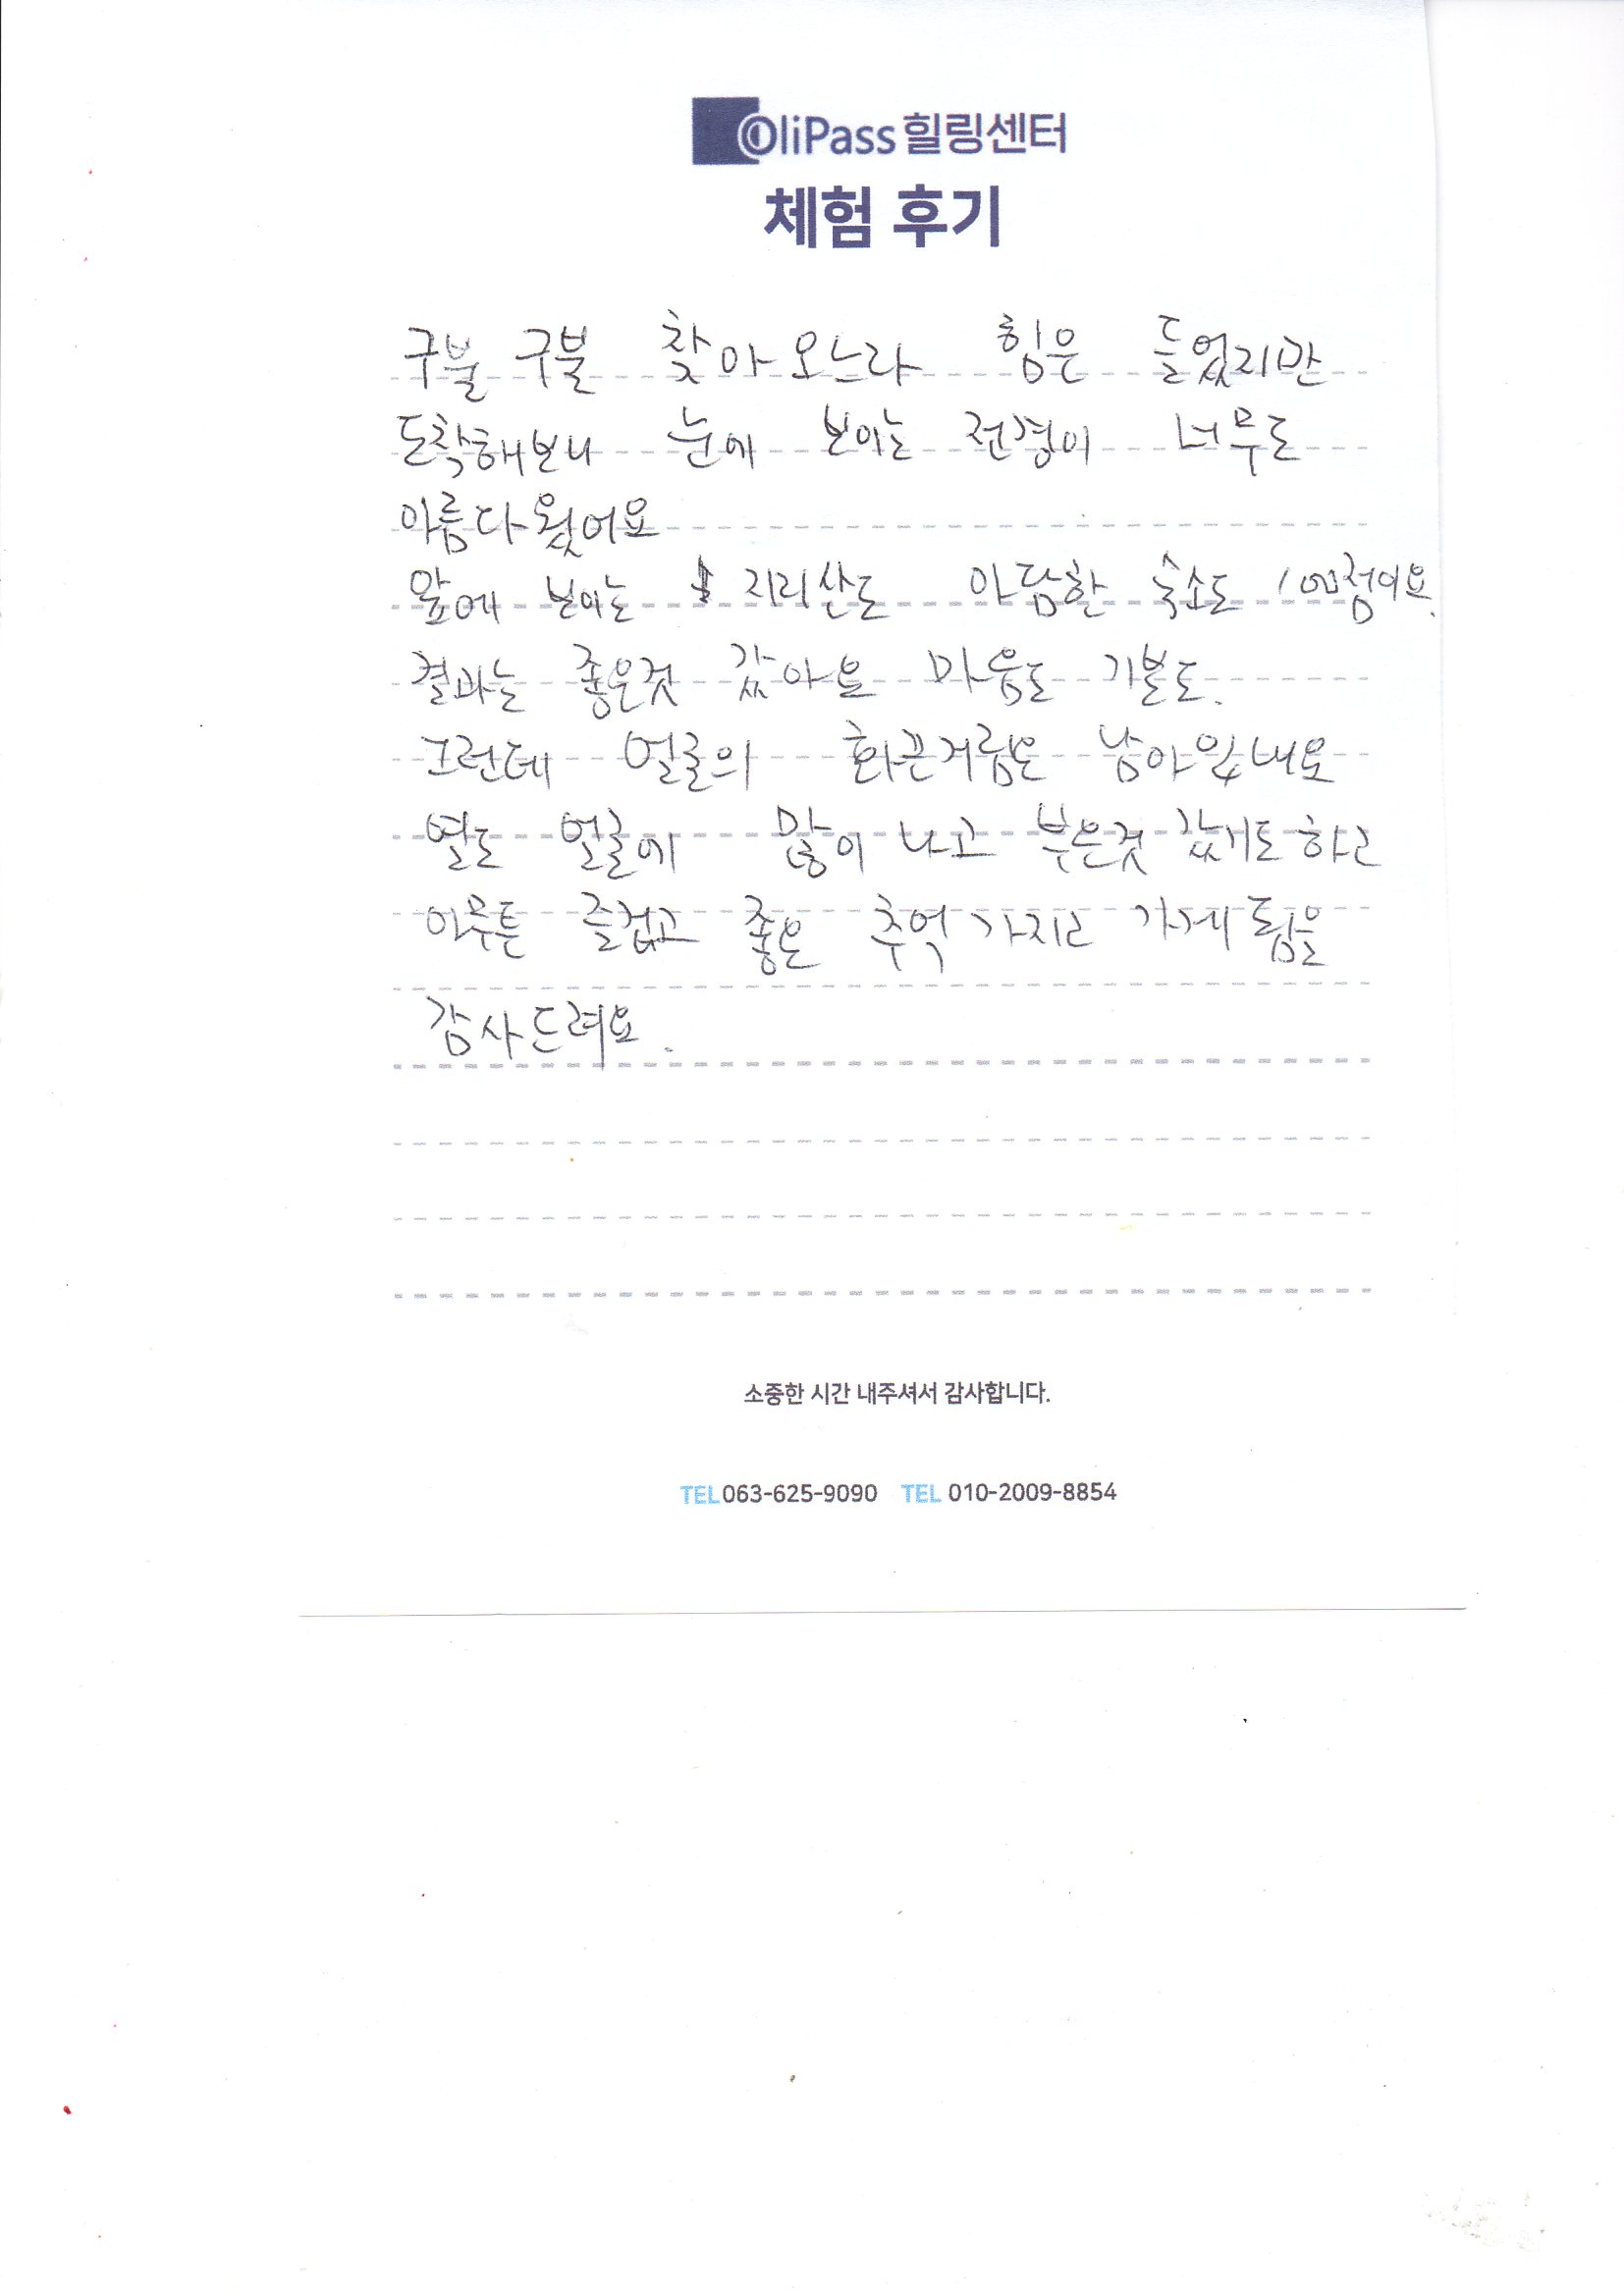 OliPass 힐링센터
체험 후기
구불 구불 찾아오느라 힘은 들었지만
도착해보니 눈에 보이는 전경이 너무도
아름다웠어요
앞에 보이는 지리산도 아담한 숙소도 100점이요.
결과는 좋은것 갔아요 마음도 기분도.
그런데 얼굴의 화끈거림은 남아있내요
열도 얼굴에 많이 나고 부은것 갔기도 하고
아무튼 즐겁고 좋은 추억 가지고 가게 됨을
감사드려요.
소중한 시간 내주셔서 감사합니다.
TEL 063-625-9090 TEL 010-2009-8854